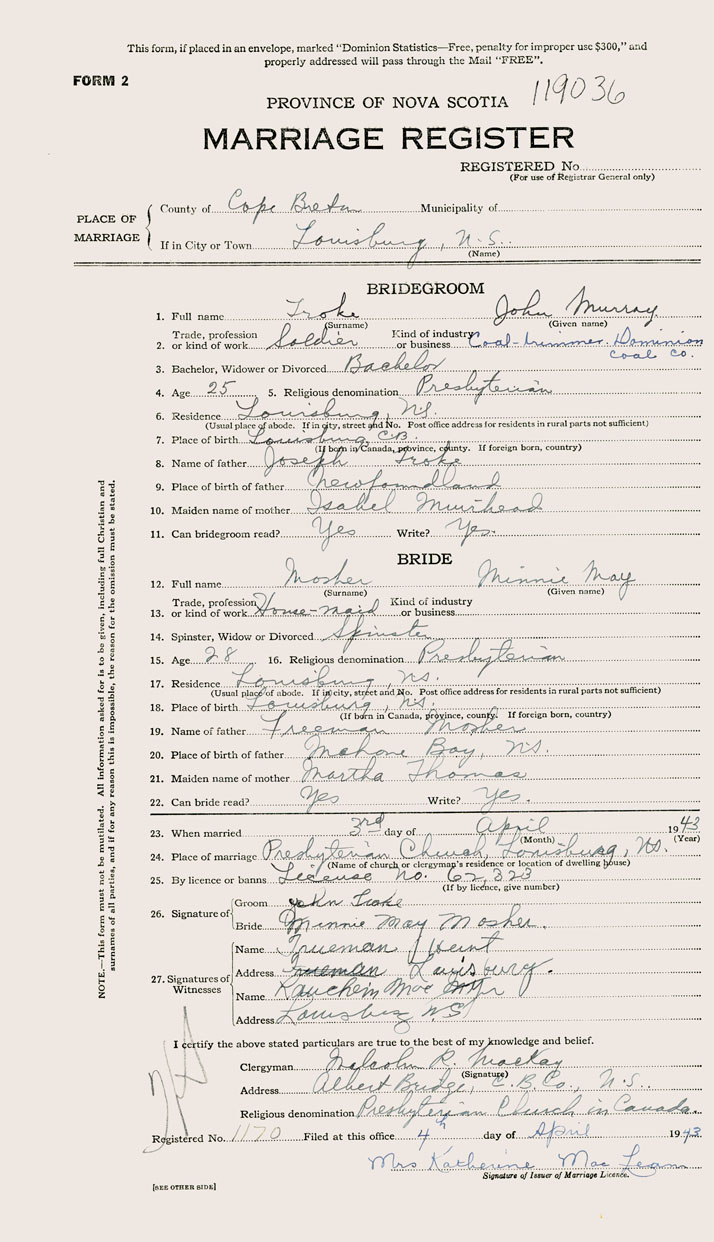 This form, if placed in an envelope, marked "Dominion Statistics—Free, penalty for improper use $300," and
properly addressed will pass through the Mail "FREE".
FORM 2
119036
PROVINCE OF NOVA SCOTIA
MARRIAGE REGISTER
REGISTERED No.
(For use of Registrar General only)
PLACE OF MARRIAGE
County of Cape Breton Municipality of
If in City or Town Louisburg, N.S.
(Name)
BRIDEGROOM
1. Full name Troke John Murray
(Surname) (Given name)
2. Trade, profession or kind of work Soldier Kind of industry or business Coal-trimmer. Dominion
Coal Co.
3. Bachelor, Widower or Divorced Bachelor
4. Age 25 5. Religious denomination Presbyterian
6. Residence Louisburg, N.S.
(Usual place of abode. If in city, street and No. Post office address for residents in rural parts not sufficient)
7. Place of birth Louisburg C.B.
(If born in Canada, province, county. If foreign born, country)
8. Name of father Joseph Troke
9. Place of birth of father Newfoundland
10. Maiden name of mother Isabel Muirhead
11. Can bridegroom read? Yes Write? Yes.
BRIDE
12. Full name Mosher Minnie May
(Surname) (Given name)
13. Trade, profession or kind of work House-maid Kind of industry or business
14. Spinster, Widow or Divorced Spinster
15. Age 28 16. Religious denomination Presbyterian
17. Residence Louisburg, N.S.
(Usual place of abode. If in city, street and No. Post office address for residents in rural parts not sufficient)
18. Place of birth Louisburg, N.S.
(If born in Canada, province, county. If foreign born, country)
19. Name of father Freeman Mosher
20. Place of birth of father Mahone Bay, N.S.
21. Maiden name of mother Martha Thomas
22. Can bride read? Yes Write? Yes.
23. When married 3rd day of April 1943
(Month) (Year)
24. Place of marriage Presbyterian Church, Louisburg, N.S.
(Name of church or clergyman's residence or location of dwelling house)
25. By licence or banns License No. 62,323
(If by licence, give number)
26. Signature of
Groom John Troke
Bride Minnie May Mosher.
27. Signatures of Witnesses
Name Trueman Hunt
Address Trueman Louisburg.
Name Mac
Address Louisburg N.S.
I certify the above stated particulars are true to the best of my knowledge and belief.
Clergyman Malcolm R. MacKay
(Signature)
Address Albert Bridge, C.B.Co., N.S.
Religious denomination Presbyterian Church in Canada.
Registered No. 1170 Filed at this office 4th day of April 1943
Mrs Katherine MacLean
Signature of Issuer of Marriage Licence.
[SEE OTHER SIDE]
NOTE.—This form must not be mutilated. All information asked for is to be given, including full Christian and
surnames of all parties, and if for any reason this is impossible, the reason for the omission must be stated.